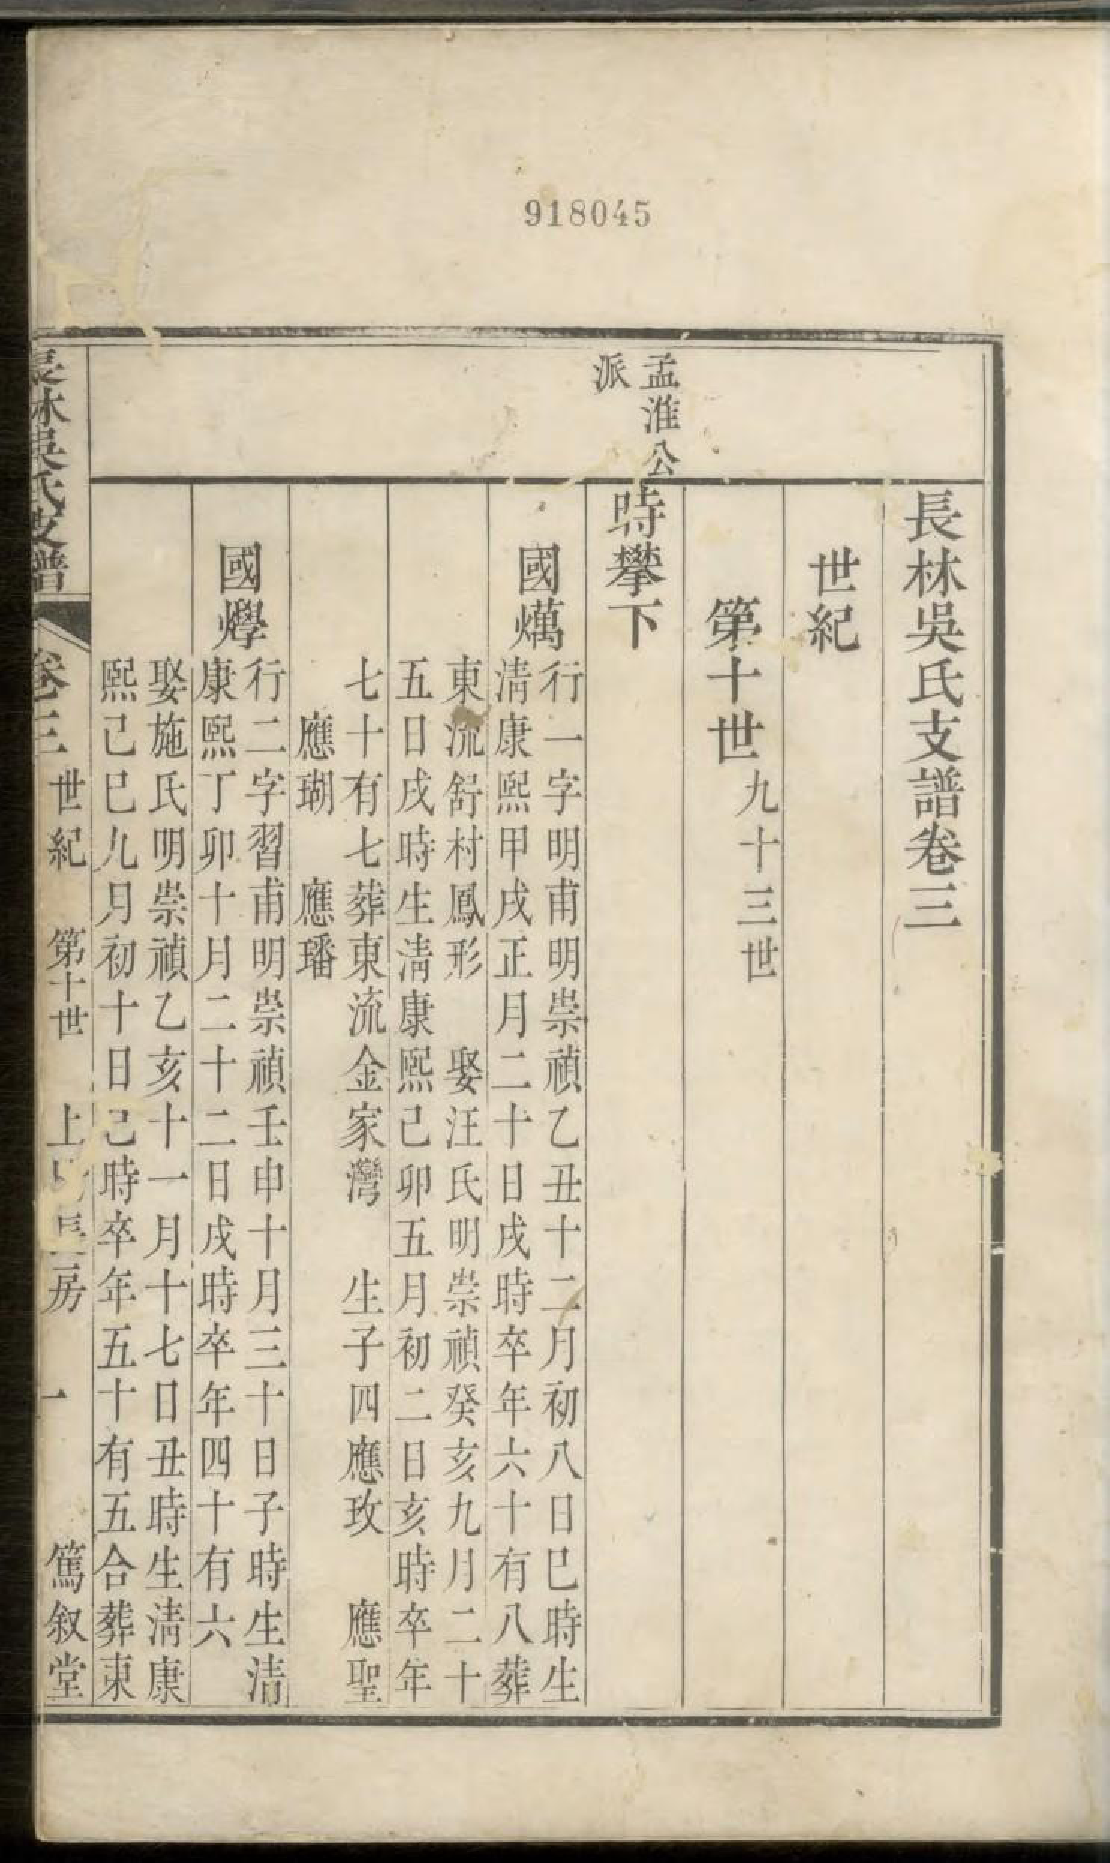 918045
長林吳氏支譜卷三
世紀
第十世九十三世
孟淮公
派
時攀下
國爄
行一字明甫明崇禎乙丑十二月初八日巳時生
淸康熙甲戌正月二十日戌時卒年六十有八葬
東流舒村鳳形 娶汪氏明崇禎癸亥九月二十
五日戌時生淸康熙己卯五月初二日亥時卒年
七十有七葬東流金家灣 生子四應玫 應聖
應瑚 應璠
國爂
行二字習甫明崇禎壬申十月三十日子時生淸
康熙丁卯十月二十二日戌時卒年四十有六
娶施氏明崇禎乙亥十一月十七日丑時生淸康
熙己巳九月初十日己時卒年五十有五合葬東
長林吳氏支譜 卷三 世紀 第十世 上 房 一 篤叙堂